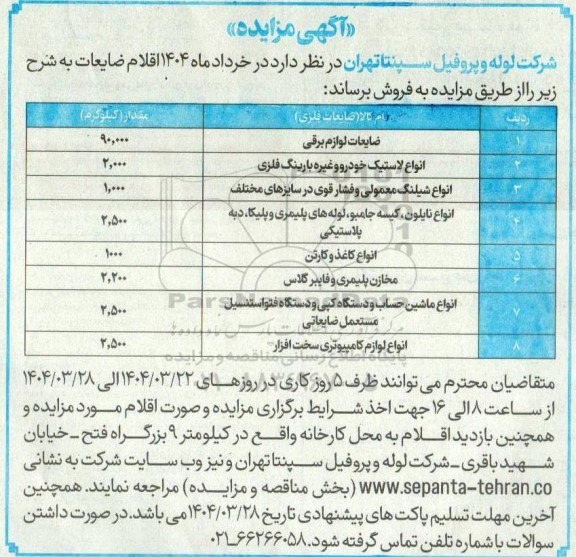 «آگهی مزایده»
شرکت لوله و پروفیل سپنتا تهران در نظر دارد در خرداد ماه ۱۴۰۴ اقلام ضایعات به شرح
زیر را از طریق مزایده به فروش برساند:
ردیف نام کالا (ضایعات فلزی) مقدار (کیلوگرم)
۱ ضایعات لوازم برقی ۹۰,۰۰۰
۲ انواع لاستیک خودرو و غیره با رینگ فلزی ۲,۰۰۰
۳ انواع شیلنگ معمولی و فشار قوی در سایزهای مختلف ۱,۰۰۰
۴ انواع نایلون، کیسه جامبو، لوله های پلیمری و پلیکا، دبه
پلاستیکی ۲,۵۰۰
۵ انواع کاغذ و کارتن ۱۰۰۰
۶ مخازن پلیمری و فایبر گلاس ۲,۲۰۰
۷ انواع ماشین حساب و دستگاه کپی و دستگاه فتو استنسیل
مستعمل ضایعاتی ۲,۵۰۰
۸ انواع لوازم کامپیوتری سخت افزار ۲,۵۰۰
متقاضیان محترم می توانند ظرف ۵ روز کاری در روزهای ۱۴۰۴/۰۳/۲۲ الی ۱۴۰۴/۰۳/۲۸
از ساعت ۸ الی ۱۶ جهت اخذ شرایط برگزاری مزایده و صورت اقلام مورد مزایده و
همچنین بازدید اقلام به محل کارخانه واقع در کیلومتر ۹ بزرگراه فتح - خیابان
شهید باقری - شرکت لوله و پروفیل سپنتا تهران و نیز وب سایت شرکت به نشانی
www.sepanta-tehran.co (بخش مناقصه و مزایده) مراجعه نمایند. همچنین
آخرین مهلت تسلیم پاکت های پیشنهادی تاریخ ۱۴۰۴/۰۳/۲۸ می باشد. در صورت داشتن
سوالات با شماره تلفن تماس گرفته شود. ۶۶۲۶۶۰۵۸-۰۲۱